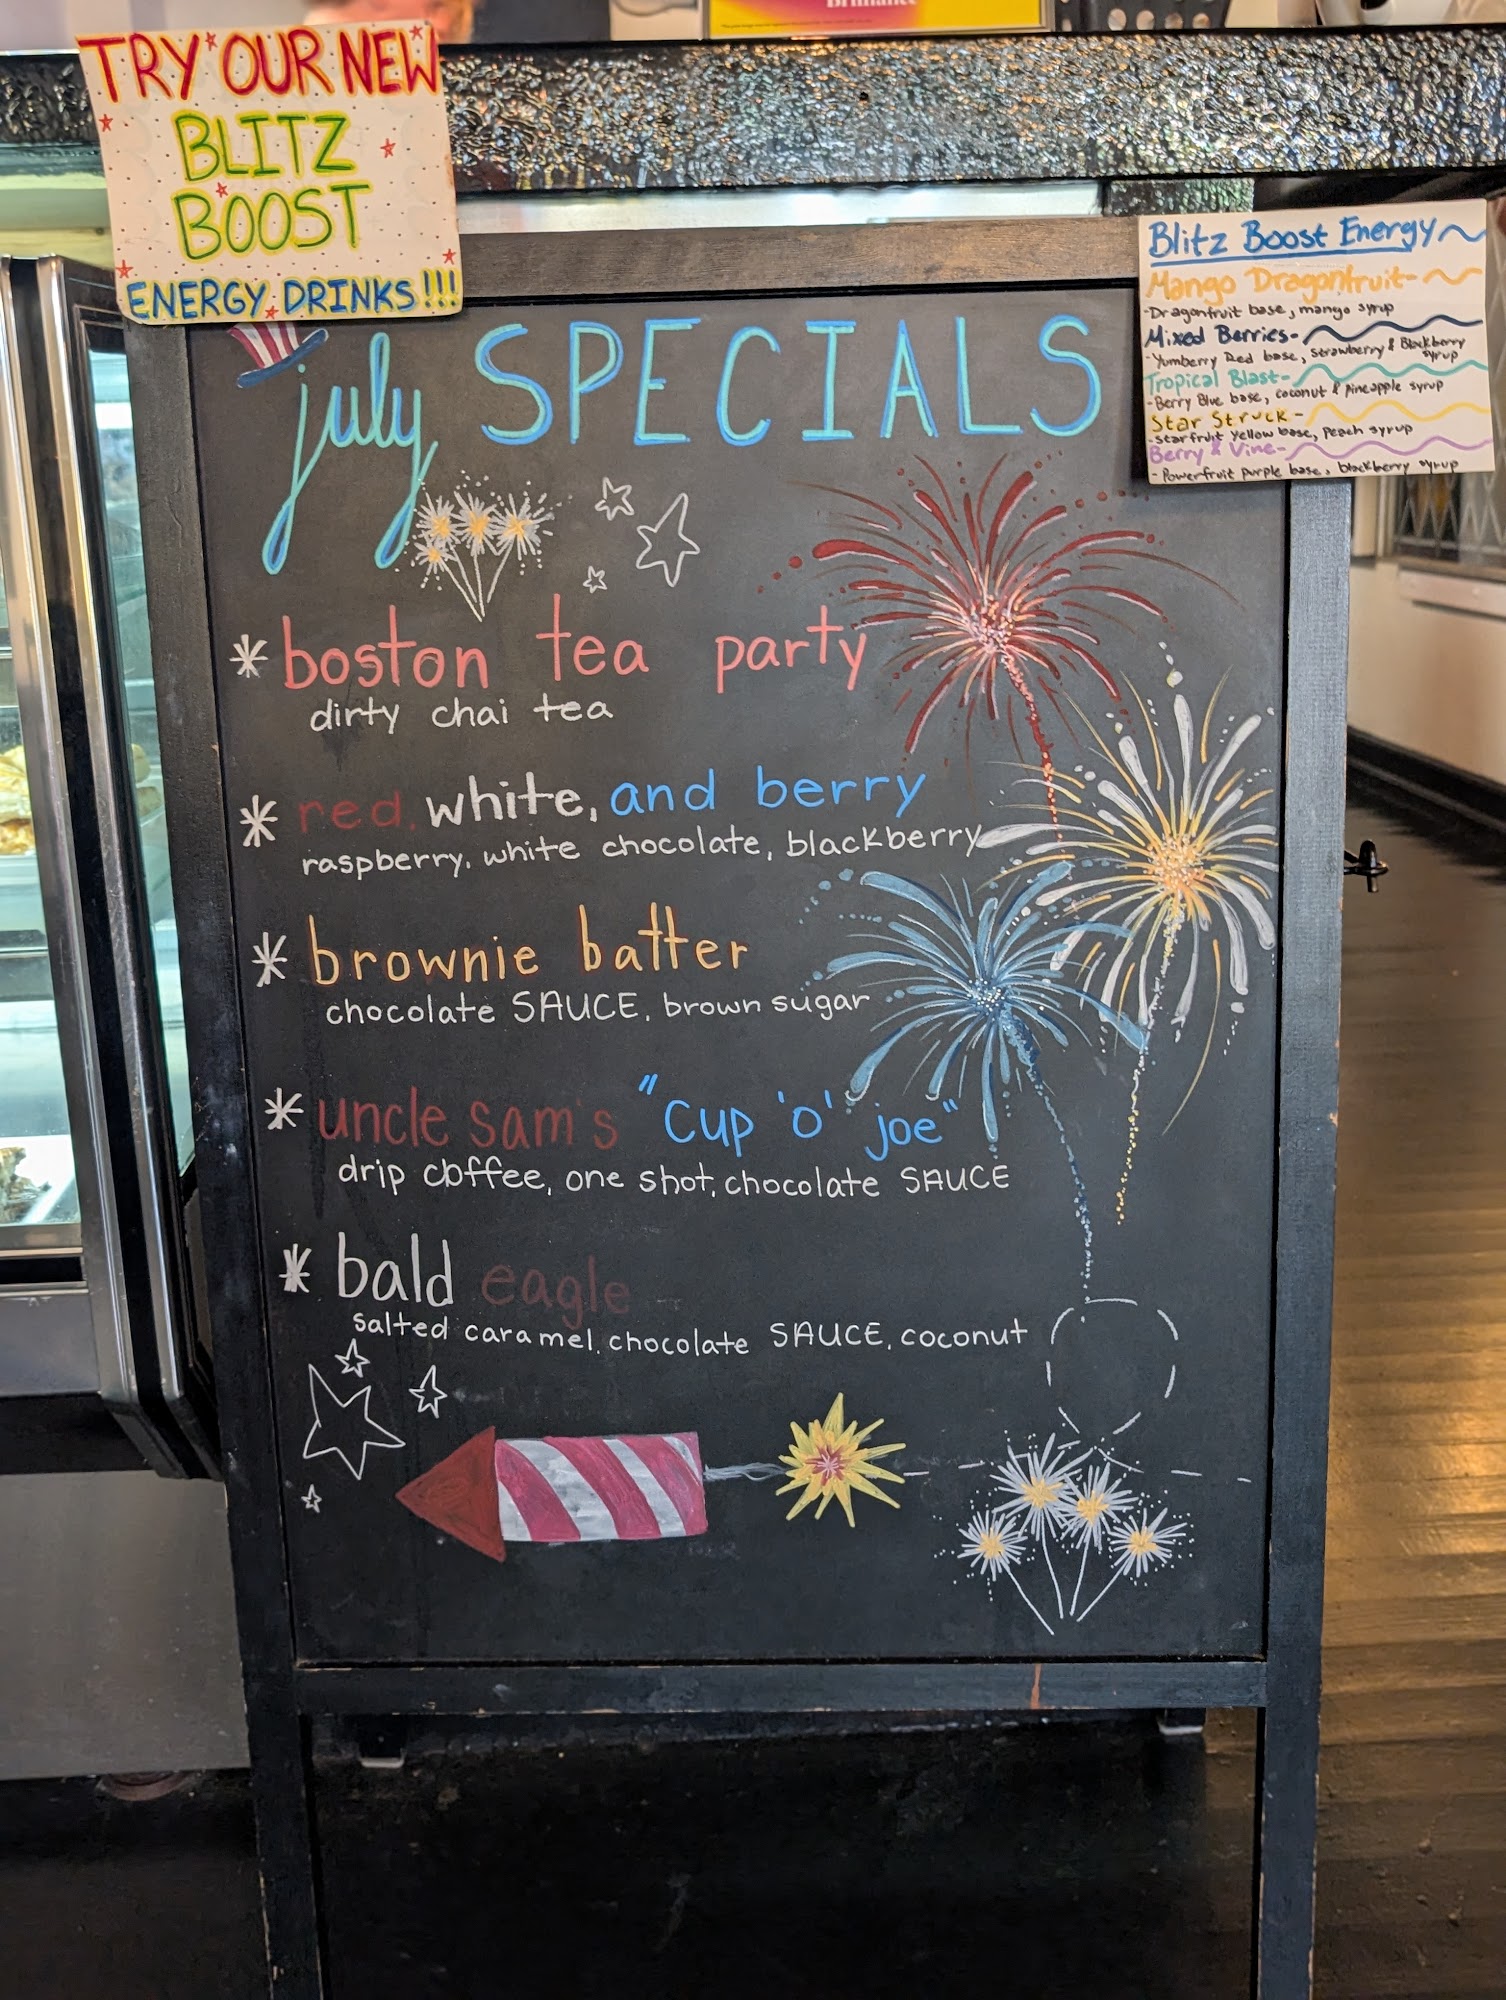 Brilliance
TRY OUR NEW
BLITZ
BOOST
ENERGY DRINKS!!!
Blitz Boost Energy
Mango Dragonfruit-
-Dragonfruit base, mango syrup
Mixed Berries-
-Yumberry Red base, Strawberry & Blackberry
syrup
Tropical Blast-
-Berry Blue base, coconut & pineapple syrup
Star Struck-
-starfruit yellow base, peach syrup
Berry & Vine-
-Powerfruit purple base, blackberry syrup
july SPECIALS
* boston tea party
dirty chai tea
* red, white, and berry
raspberry, white chocolate, blackberry
* brownie batter
chocolate SAUCE, brown sugar
* uncle sam's "cup 'o' joe"
drip coffee, one shot, chocolate SAUCE
* bald eagle
salted caramel, chocolate SAUCE, coconut